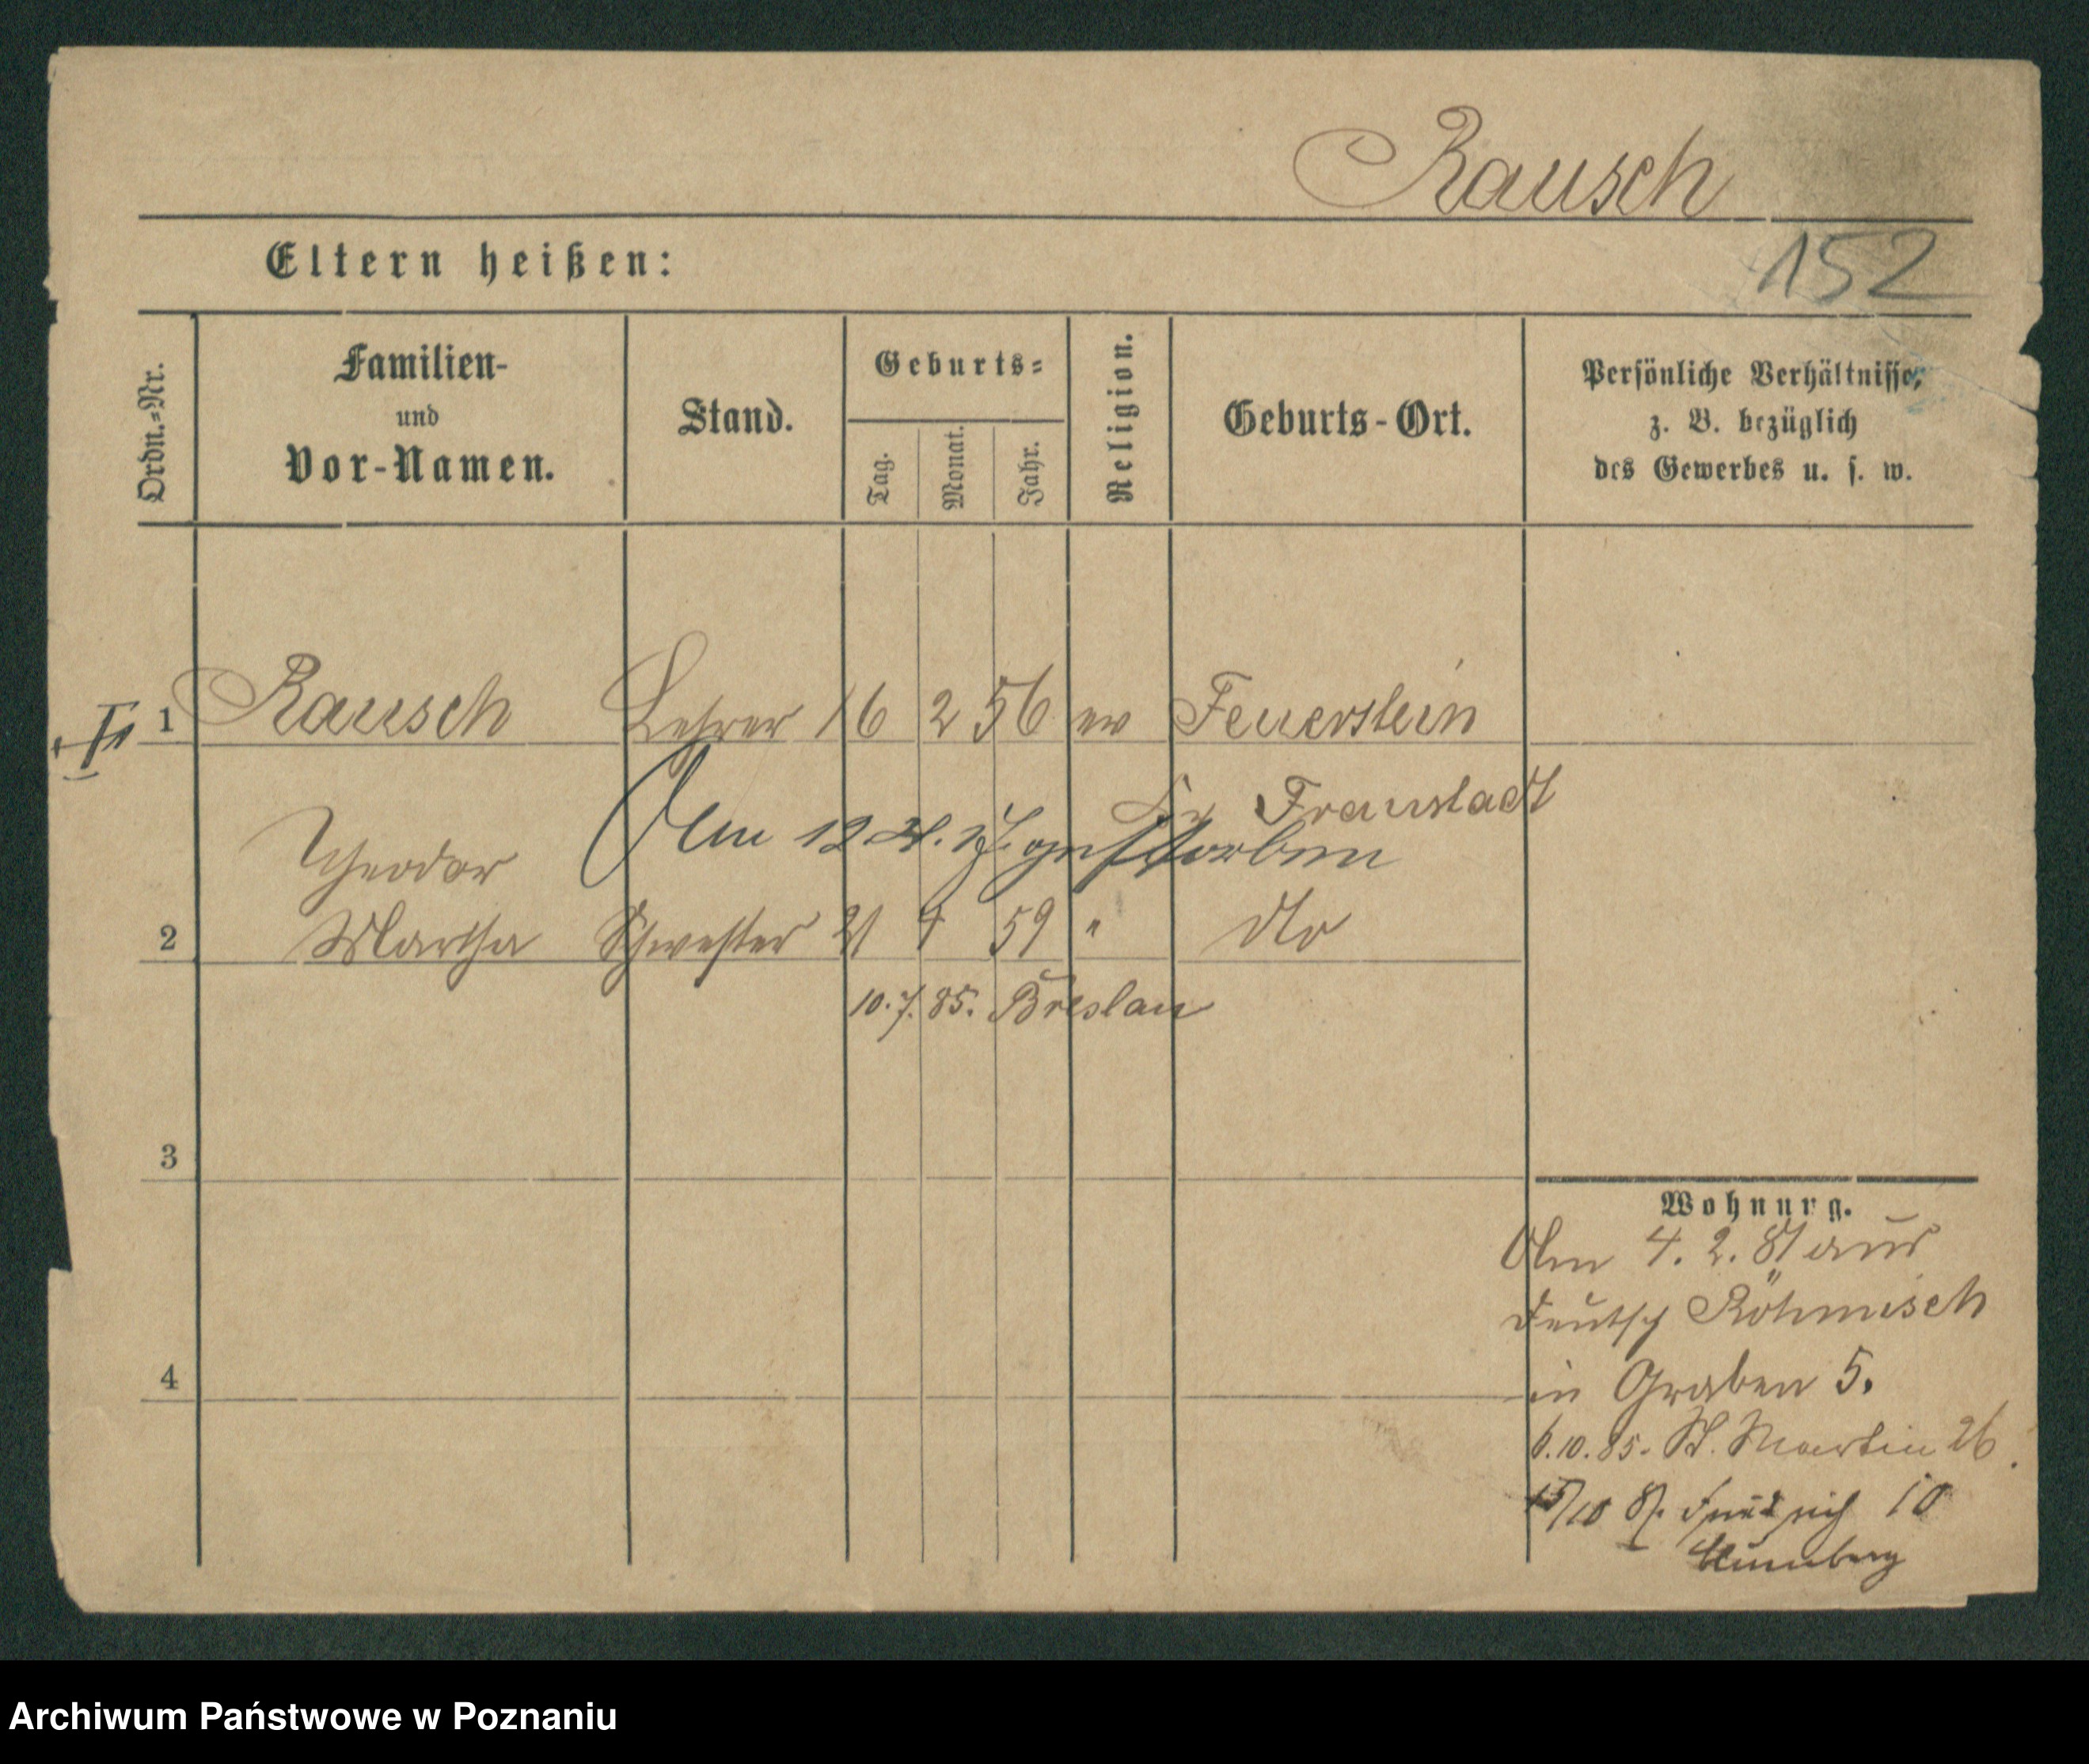 Rausch
152
Eltern heißen:
Ordn.-Nr.
Familien-
und
Vor-Namen.
Stand.
Geburts-
Tag.
Monat.
Jahr.
Religion.
Geburts-Ort.
Persönliche Verhältnisse,
z. B. bezüglich
des Gewerbes u. s. w.
1 Rausch Lehrer 16 2 56 ev Feuerstein
Kr Fraustadt
Theodor
Am 12 gestorben
2 Martha Schwester 21 4 59 " dto
10.7.85. Breslau
3
4
Wohnung.
Am 4. 2. 81 aus
deutsch Böhmisch
in Graben 5.
6.10.85. St. Martin 26.
15/10 87. 10